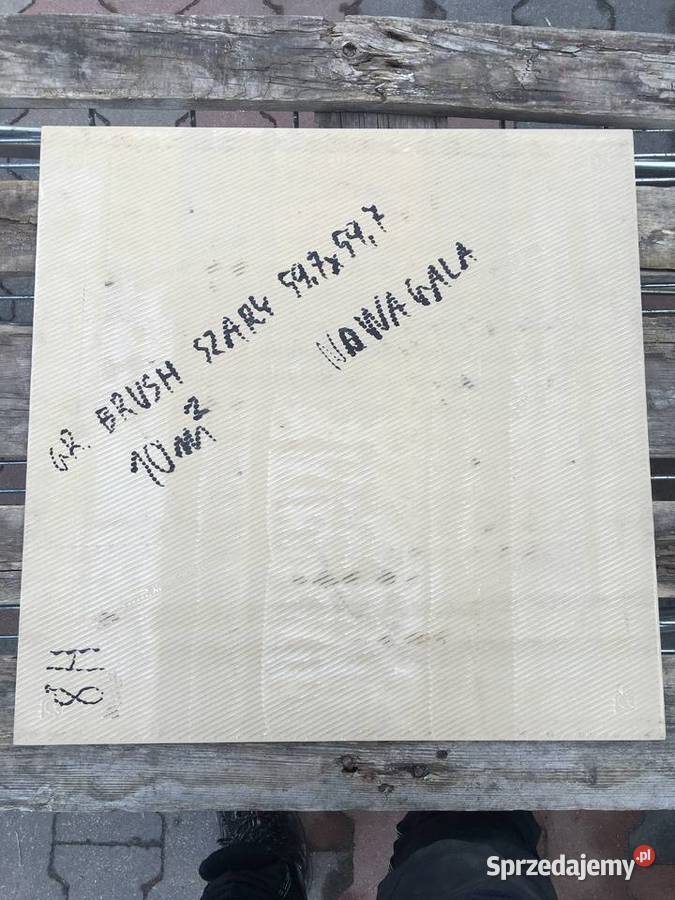 GR. BRUSH SZARY 59,7x59,7
NOWA GALA
10 m²
8H
Sprzedajemy.pl